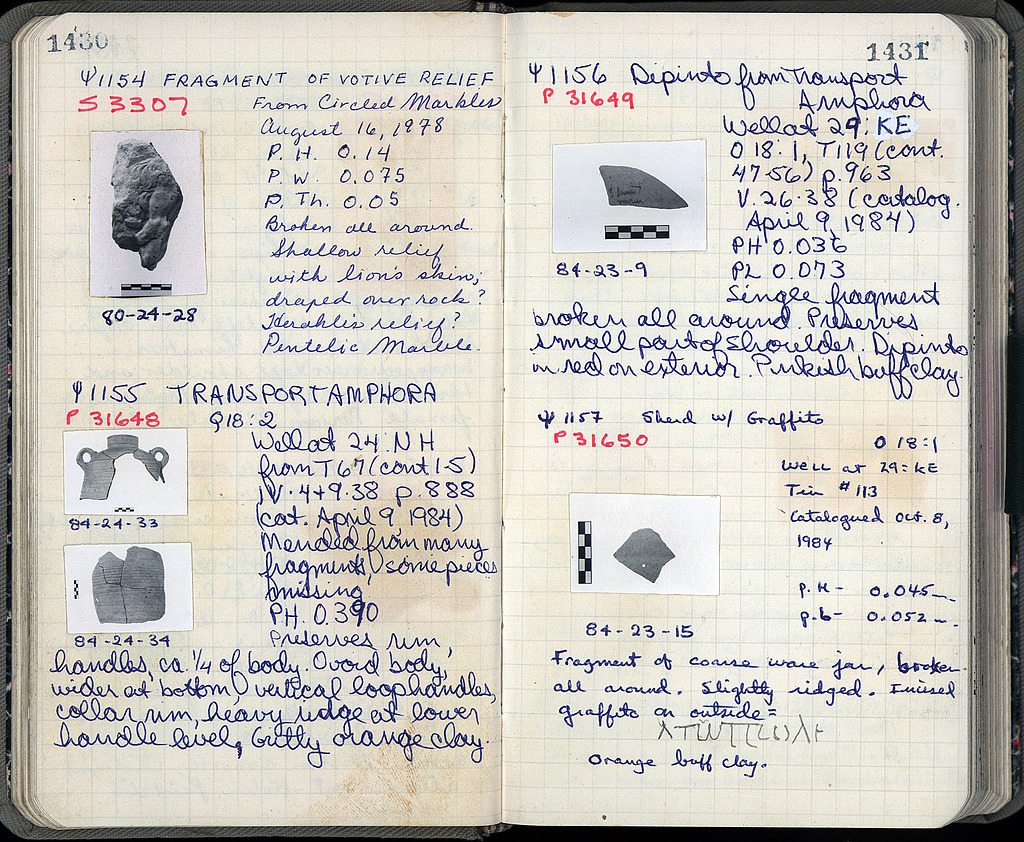 1430
Ψ1154 FRAGMENT OF VOTIVE RELIEF
S 3307
From Circled Marbles
August 16, 1978
P. H. 0.14
P. W. 0.075
P. Th. 0.05
Broken all around.
Shallow relief
with lion's skin;
draped over rock?
Herakles relief?
Pentelic Marble.
80-24-28
Ψ1155 TRANSPORT AMPHORA
P 31648
Q18:2
Well at 24:NH
from T67 (cont. 1-5)
IV·4+9·38 p. 888
(cat. April 9, 1984)
Mended from many
fragments, some pieces
missing
PH. 0.390
Preserves rim,
handles, ca. 1/4 of body. Ovoid body,
wider at bottom, vertical loop handles,
collar rim, heavy ridge at lower
handle level, Gritty orange clay.
84-24-33
84-24-34
1431
Ψ1156 Dipinto from Transport
Amphora
P 31649
Well at 29:KE
O 18:1, T119 (cont.
47-56) p. 963
V·26·38 (catalog.
April 9, 1984)
PH 0.036
PL 0.073
Single fragment
broken all around. Preserves
small part of shoulder. Dipinto
in red on exterior. Pinkish buff clay.
84-23-9
Ψ 1157 Sherd w/ Graffito
P 31650
O 18:1
Well at 29:KE
Tin #113
Catalogued Oct. 8,
1984
p.H- 0.045
p.L- 0.052
84-23-15
Fragment of coarse ware jar, broken
all around. Slightly ridged. Incised
graffito on outside=
orange buff clay.